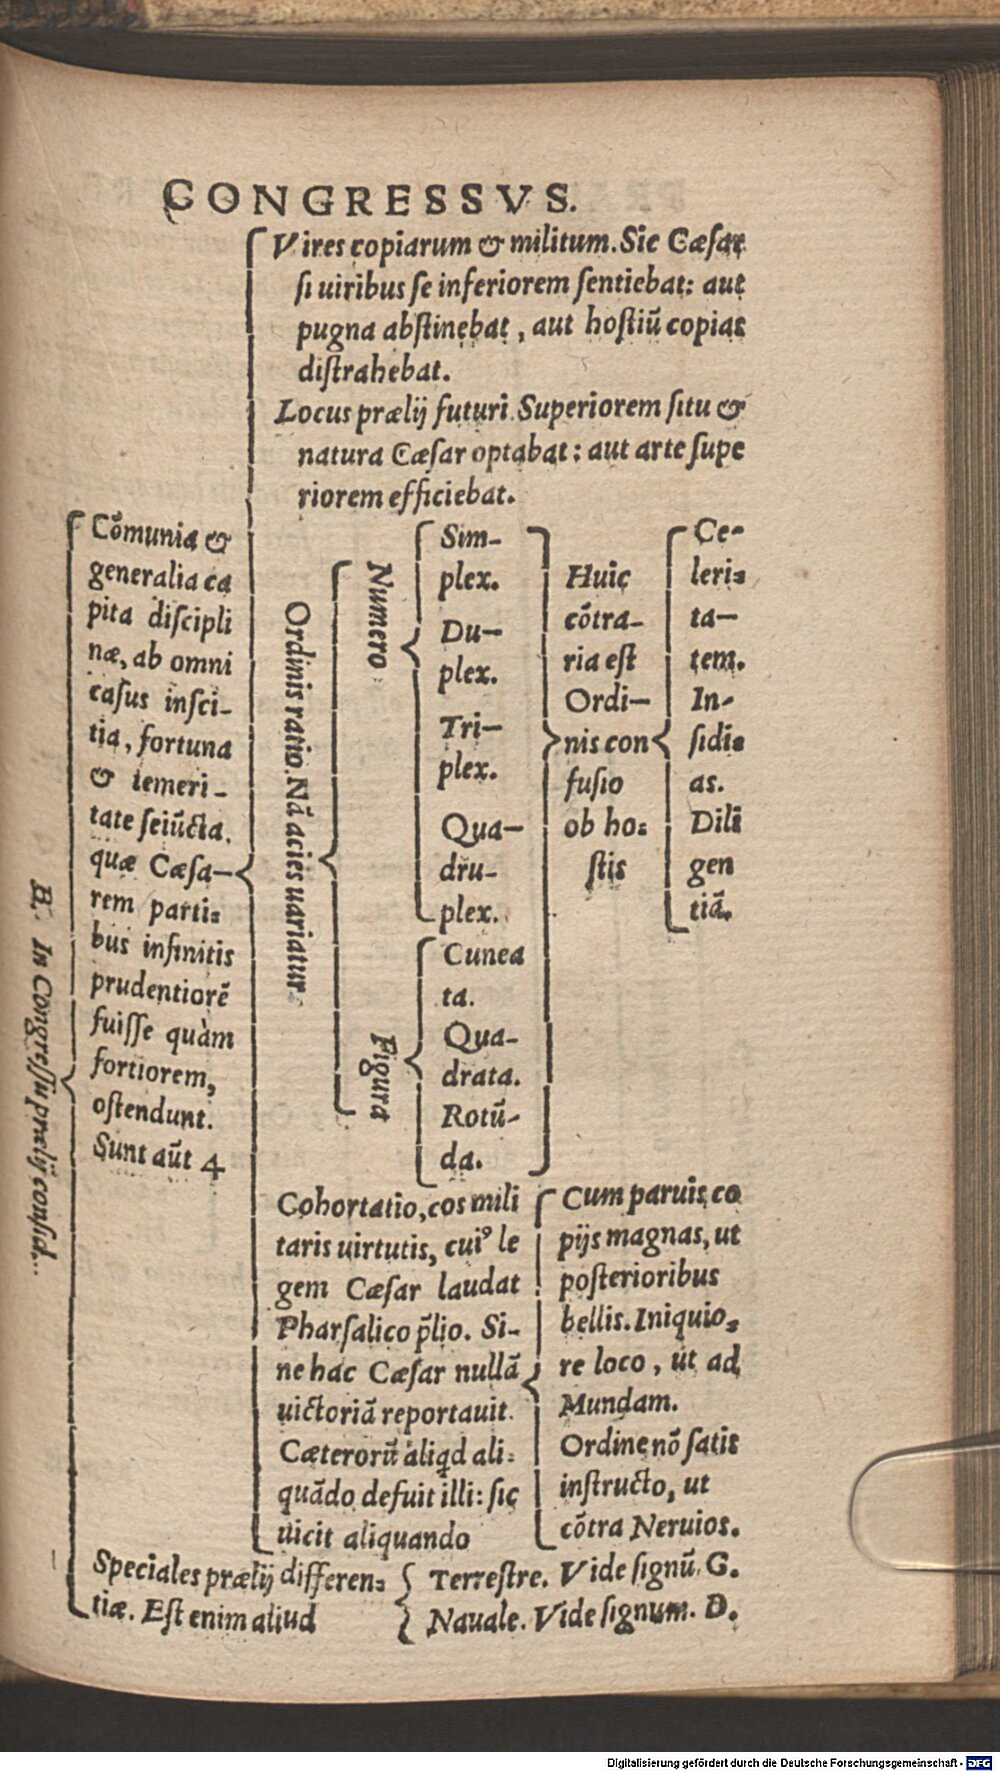 CONGRESSVS.
B. In Congressu prælij consid...
Cōmunia &
generalia ca
pita discipli
næ, ab omni
casus insci-
tia, fortuna
& temeri-
tate seiūcta.
quæ Cæsa-
rem parti-
bus infinitis
prudentiorē
fuisse quàm
fortiorem,
ostendunt.
Sunt aūt 4
Vires copiarum & militum. Sic Cæsar
si uiribus se inferiorem sentiebat: aut
pugna abstinebat, aut hostiū copias
distrahebat.
Locus prælij futuri. Superiorem situ &
natura Cæsar optabat: aut arte supe
riorem efficiebat.
Ordinis ratio. Nā acies uariatur
Numero
Sim-
plex.
Du-
plex.
Tri-
plex.
Qua-
dru-
plex.
Figura
Cunea
ta.
Qua-
drata.
Rotū-
da.
Huic
cōtra-
ria est
Ordi-
nis con
fusio
ob ho-
stis
Ce-
leri-
ta-
tem.
In-
sidi-
as.
Dili
gen
tiā.
Cohortatio, cos mili
taris uirtutis, cui⁹ le
gem Cæsar laudat
Pharsalico p̄lio. Si-
ne hac Cæsar nullā
uictoriā reportauit.
Cæterorū aliqd ali-
quādo defuit illi: sic
uicit aliquando
Cum paruis co
pijs magnas, ut
posterioribus
bellis. Iniquio-
re loco, ut ad
Mundam.
Ordine nō satis
instructo, ut
cōtra Neruios.
Speciales prælij differen-
tiæ. Est enim aliud
Terrestre. Vide signū. G.
Nauale. Vide signum. D.
Digitalisierung gefördert durch die Deutsche Forschungsgemeinschaft - DFG